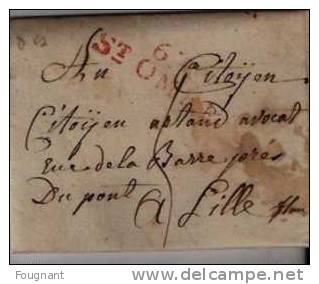 6
ST OMER
Au Citoÿen
Citoÿen artaud avocat
rue de la Barre pres
Du pont
a Lille
Fougnant
www.delcampe.net